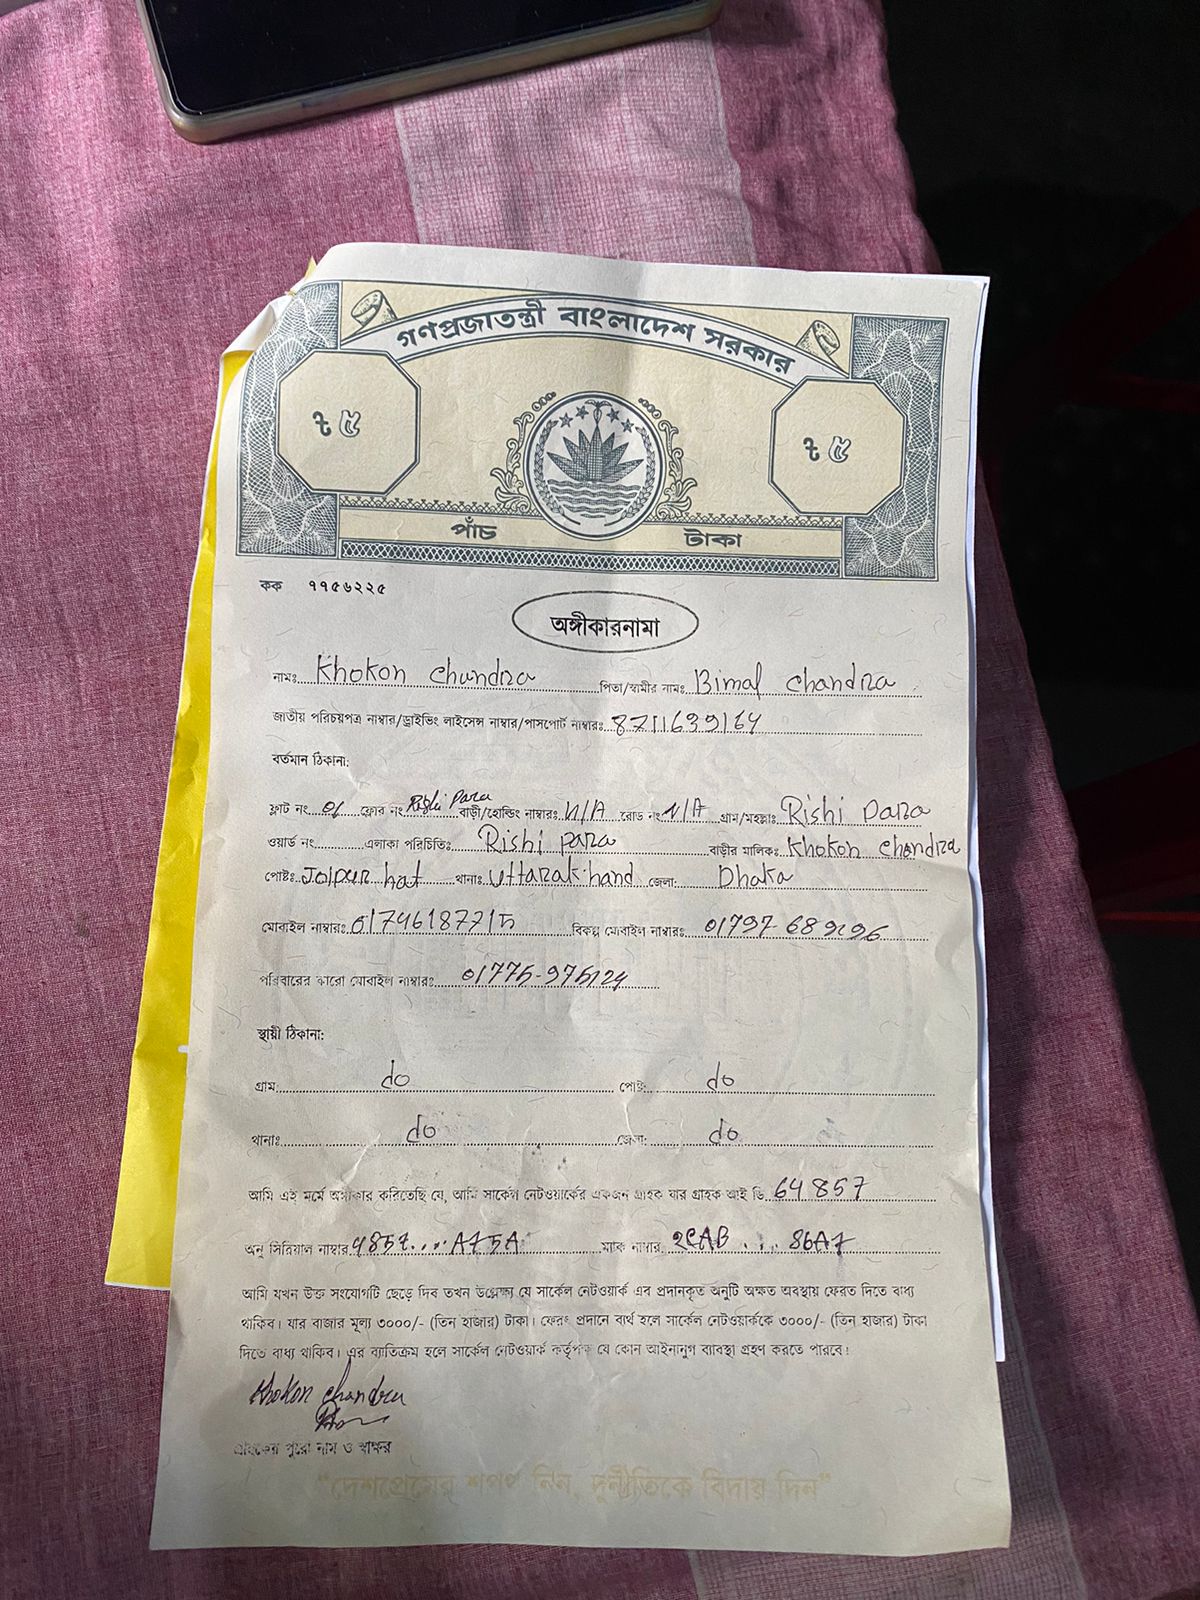 গণপ্রজাতন্ত্রী বাংলাদেশ সরকার
৳ ৫
৳ ৫
পাঁচ টাকা
কক ৭৭৫৬২২৫
অঙ্গীকারনামা
নামঃ Khokon Chandra পিতা/স্বামীর নামঃ Bimal Chandra
জাতীয় পরিচয়পত্র নাম্বার/ড্রাইভিং লাইসেন্স নাম্বার/পাসপোর্ট নাম্বারঃ 8711639164
বর্তমান ঠিকানা:
ফ্লাট নং 01 ফ্লোর নং Rishi Para বাড়ী/হোল্ডিং নাম্বারঃ N/A রোড নং N/A গ্রাম/মহল্লাঃ Rishi para
ওয়ার্ড নং এলাকা পরিচিতিঃ Rishi para বাড়ীর মালিকঃ Khokon chandra
পোষ্টঃ Joipur hat থানাঃ Uttarakhand জেলা: Dhaka
মোবাইল নাম্বারঃ বিকল্প মোবাইল নাম্বারঃ 01797-689296
পরিবারের কারো মোবাইল নাম্বারঃ
স্থায়ী ঠিকানা:
গ্রাম do পোষ্ট: do
থানাঃ do জেলা: do
আমি এই মর্মে অঙ্গীকার করিতেছি যে, আমি সার্কেল নেটওয়ার্কের একজন গ্রাহক যার গ্রাহক আই ডি. 64857
অনু সিরিয়াল নাম্বার 4857...A75A ম্যাক নাম্বার 2CAB ... 86A7
আমি যখন উক্ত সংযোগটি ছেড়ে দিব তখন উল্লেখ্য যে সার্কেল নেটওয়ার্ক এর প্রদানকৃত অনুটি অক্ষত অবস্থায় ফেরত দিতে বাধ্য
থাকিব। যার বাজার মূল্য ৩০০০/- (তিন হাজার) টাকা। ফেরৎ প্রদানে ব্যর্থ হলে সার্কেল নেটওয়ার্ককে ৩০০০/- (তিন হাজার) টাকা
দিতে বাধ্য থাকিব। এর ব্যতিক্রম হলে সার্কেল নেটওয়ার্ক কর্তৃপক্ষ যে কোন আইনানুগ ব্যাবস্থা গ্রহণ করতে পারবে।
Khokon chandra
গ্রাহকের পুরো নাম ও স্বাক্ষর
“দেশপ্রেমের শপথ নিন, দুর্নীতিকে বিদায় দিন”